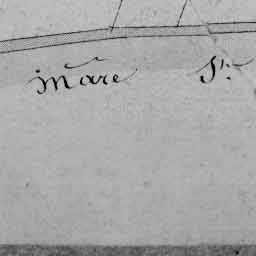 mare St.